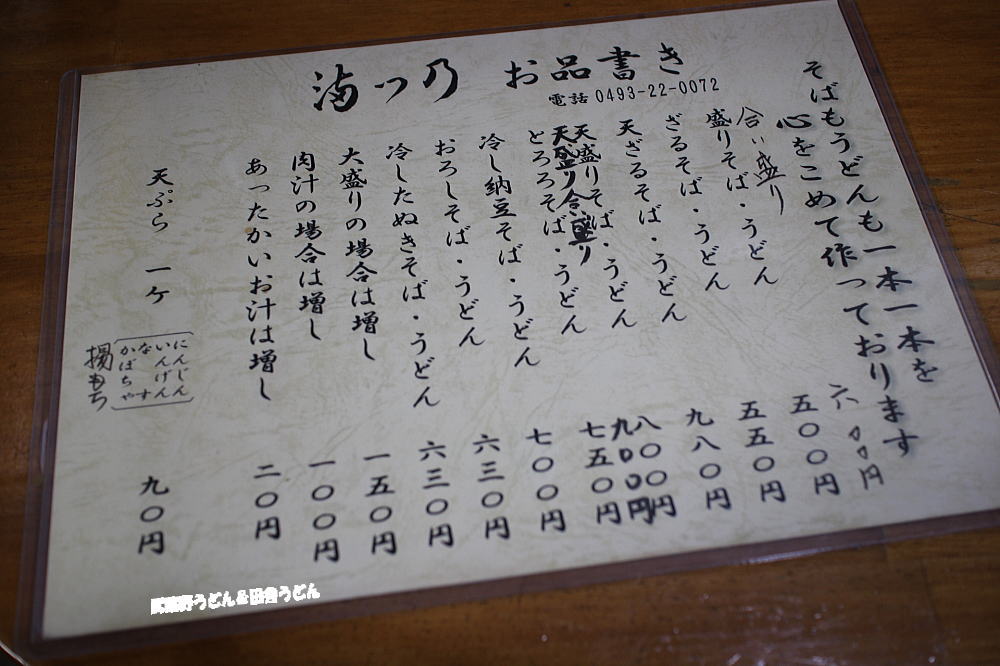 満つ乃 お品書き
電話 0493-22-0072
そばもうどんも一本一本を
心をこめて作っております
合い盛り 六〇〇円
盛りそば・うどん 五〇〇円
ざるそば・うどん 五五〇円
天ざるそば・うどん 九八〇円
天盛りそば・うどん 八〇〇円
天盛り合い盛り 九〇〇円
とろろそば・うどん 七五〇円
冷し納豆そば・うどん 七〇〇円
おろしそば・うどん 六三〇円
冷したぬきそば・うどん 六三〇円
大盛りの場合は増し 一五〇円
肉汁の場合は増し 一〇〇円
あったかいお汁は増し 二〇円
天ぷら 一ケ 九〇円
にんじん
いんげん
なす
かぼちゃ
揚もち
武蔵野うどん&田舎うどん